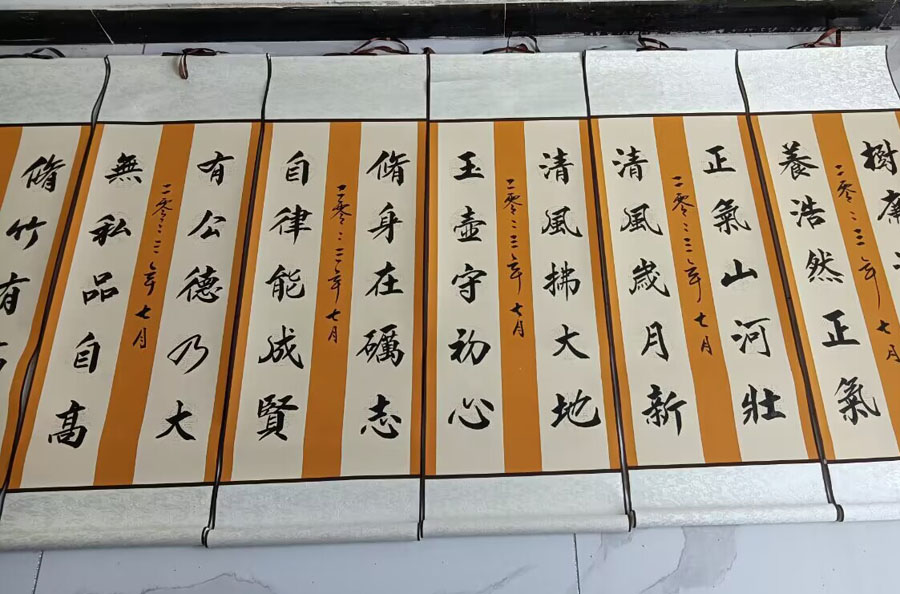 樹廉
二零二三年七月
養浩然正氣
正氣山河壯
二零二三年七月
清風歲月新
清風拂大地
二零二三年七月
玉壺守初心
脩身在礪志
二零二三年七月
自律能成賢
有公德乃大
二零二三年七月
無私品自高
脩竹有